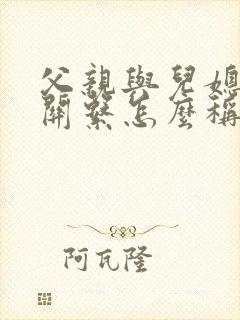 父親與兒媳
關繫怎麼稱
阿瓦隆